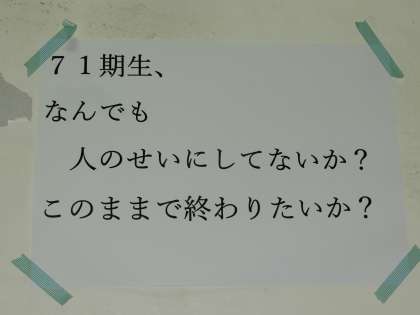 ７１期生、
なんでも
　人のせいにしてないか？
このままで終わりたいか？